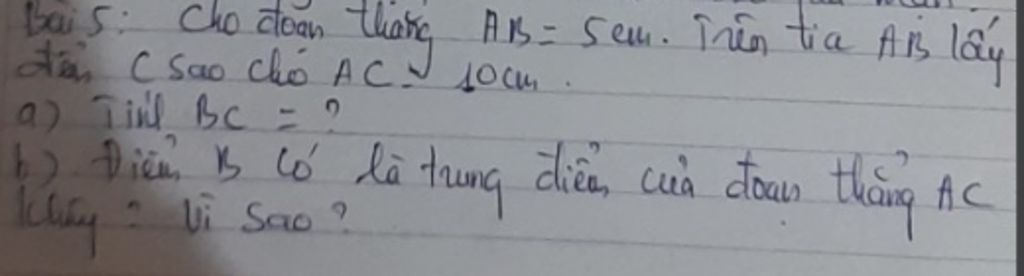 Bài 5: Cho đoạn thẳng AB = 5cm. Trên tia AB lấy
điểm C sao cho AC = 10cm.
a) Tính BC = ?
b) Điểm B có là trung điểm của đoạn thẳng AC
không? Vì sao?